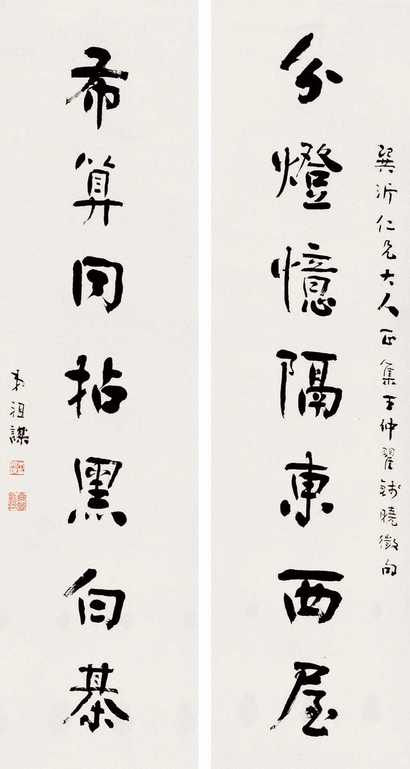 巽沂仁兄大人正集王仲瞿錢曉徵句
分燈憶隔東西屋
布算同拈黑白棊
朱祖謀